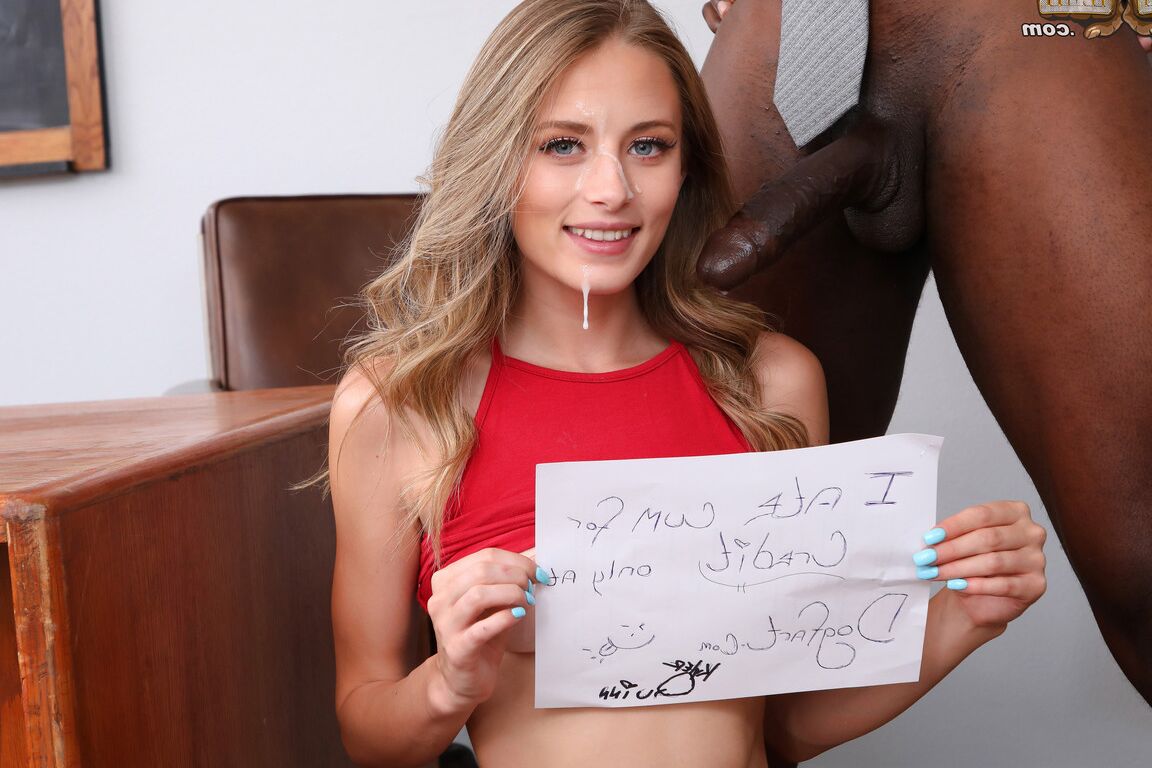 .com
I Ate Cum for
Credit only at
Dogfart.com
Quinn